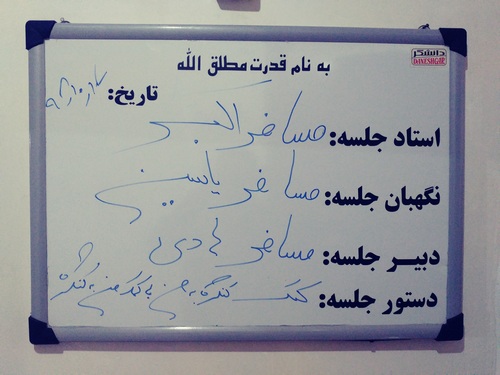 به نام قدرت مطلق الله
دانشگر
DANESHGAR
تاریخ: ۹۸/۱۰/۱۷
استاد جلسه: مسافر اکبر
نگهبان جلسه: مسافر یاسین
دبیر جلسه: مسافر هادی
دستور جلسه: کمک کنگره به من و کمک من به کنگره